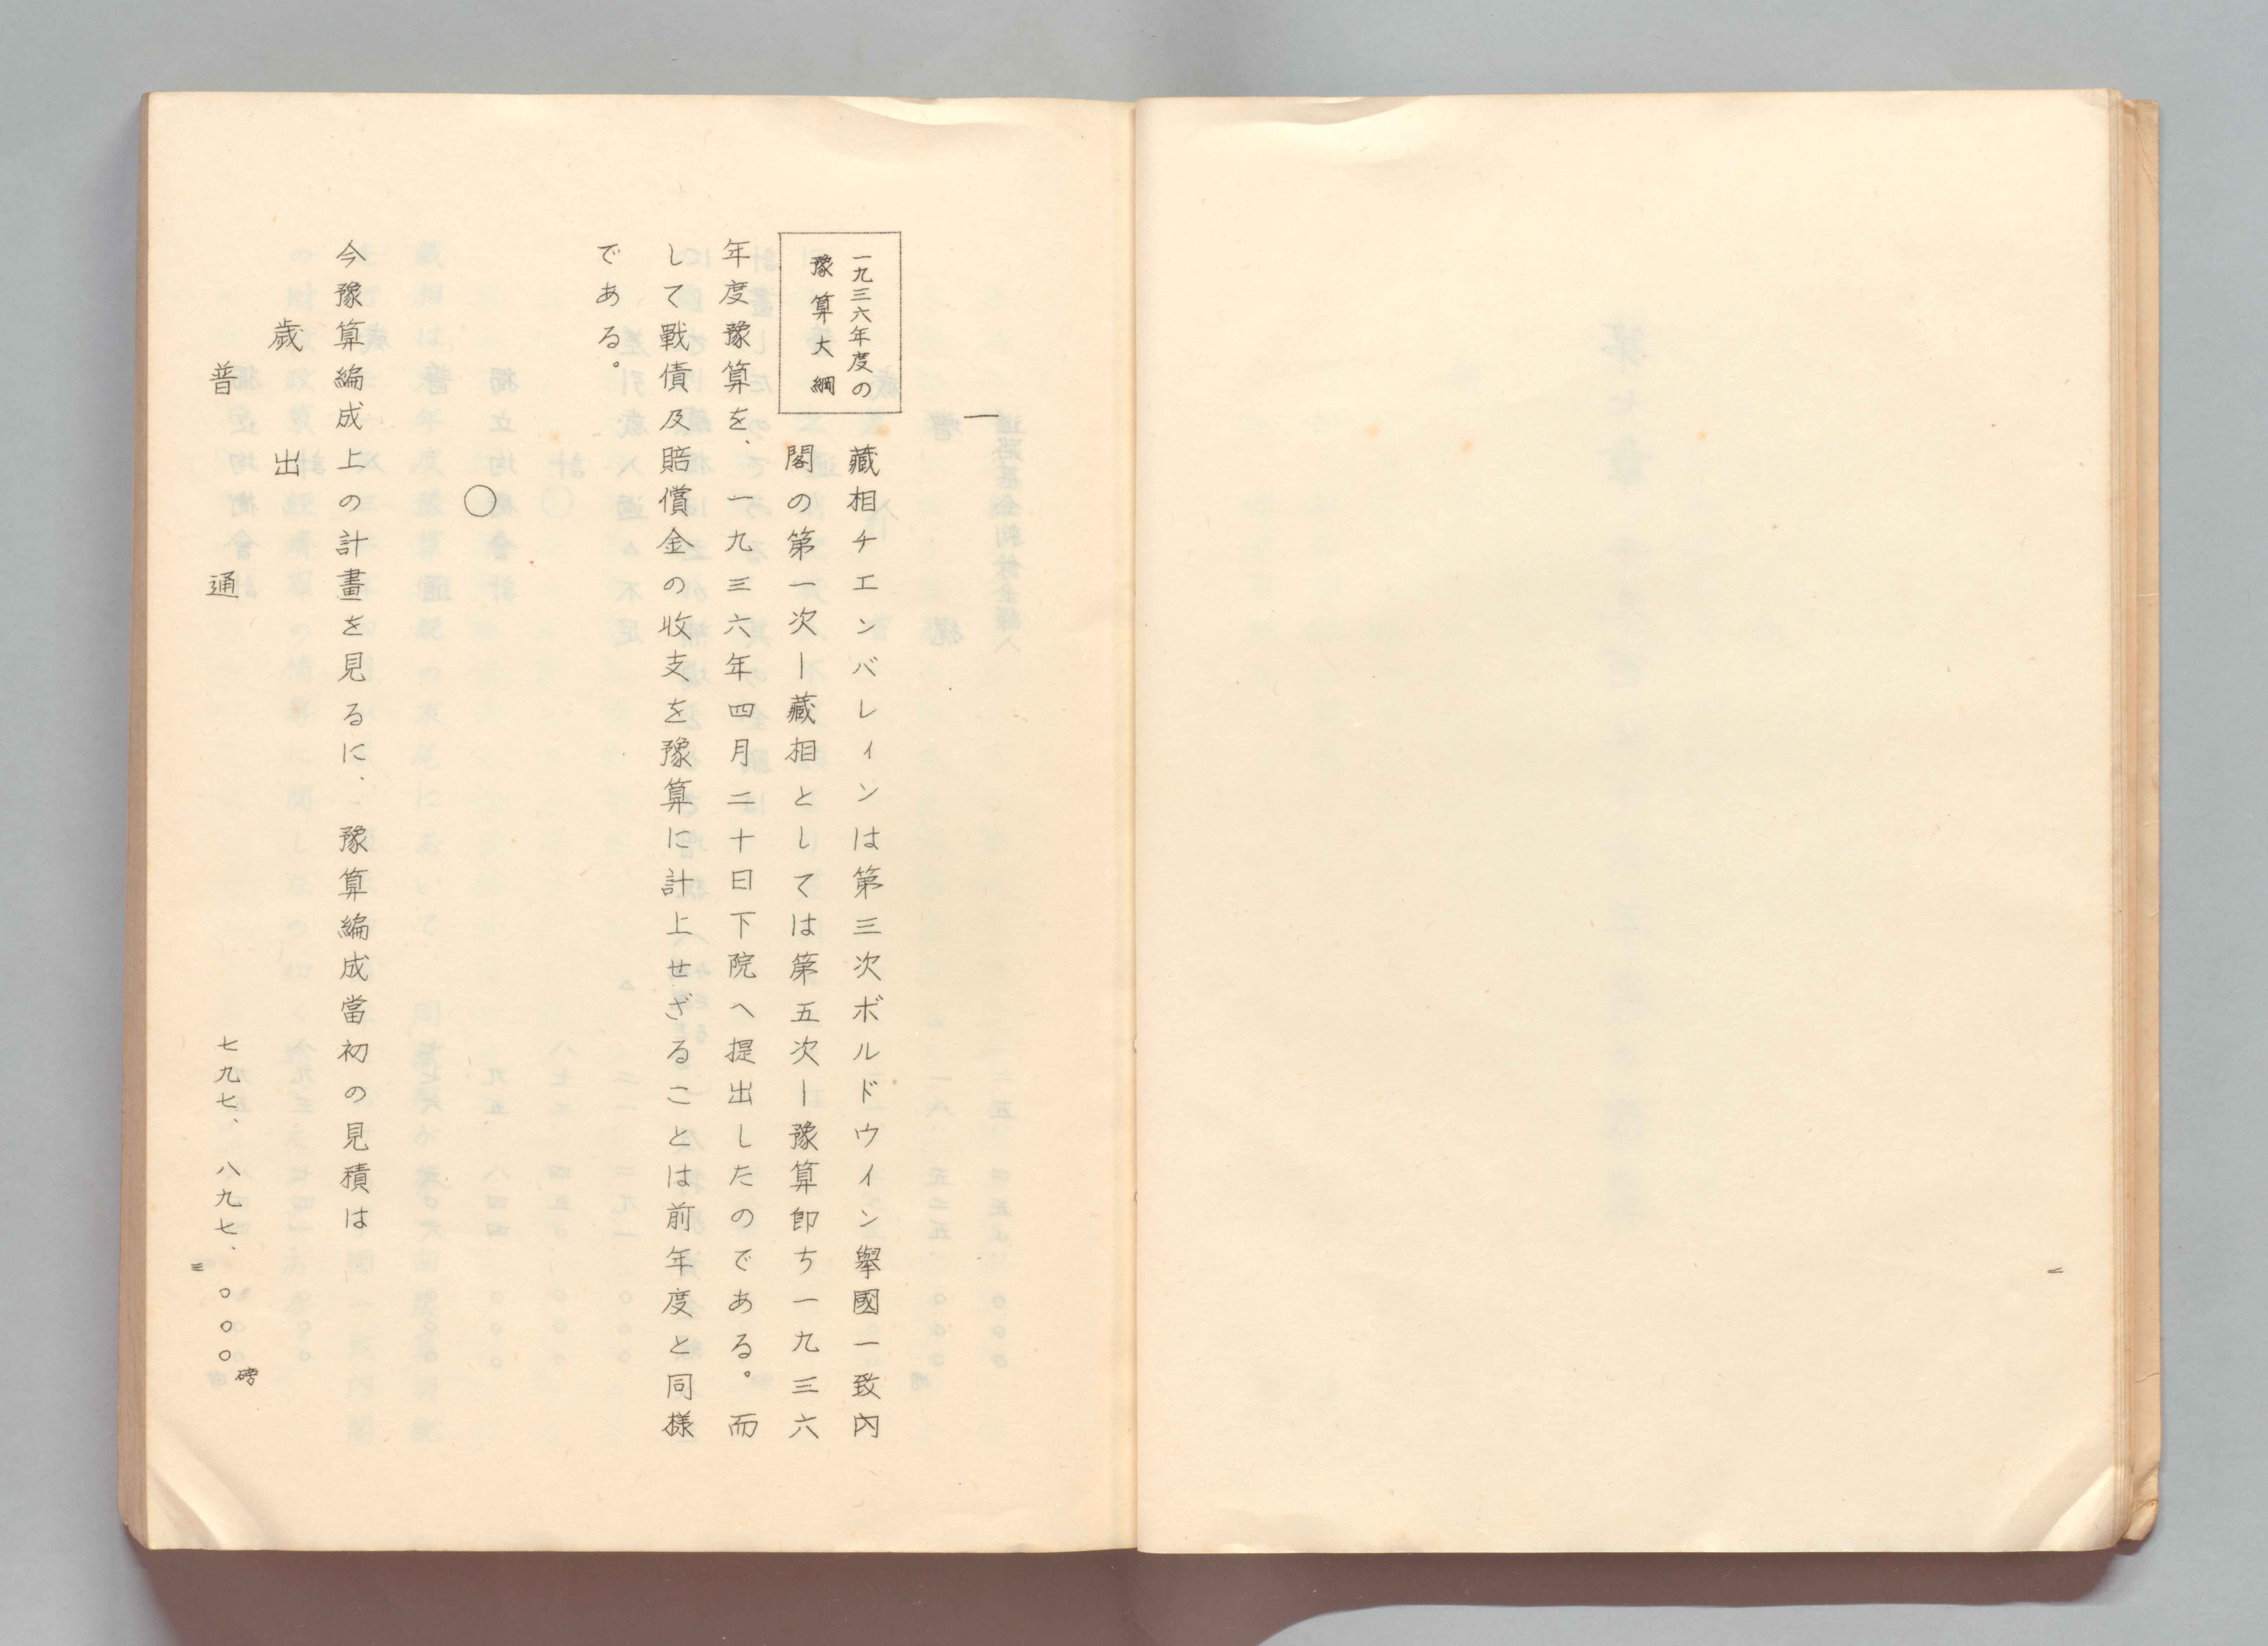 二
一
一九三六年度の
豫算大綱
藏相チエンバレインは第三次ボルドウイン擧國一致內
閣の第一次ー藏相としては第五次ー豫算卽ち一九三六
年度豫算を、一九三六年四月二十日下院へ提出したのである。而
して戰債及賠償金の收支を豫算に計上せざることは前年度と同樣
である。
○
今豫算編成上の計畫を見るに、豫算編成當初の見積は
歲出
普通 七九七、八九七、〇〇〇磅
三